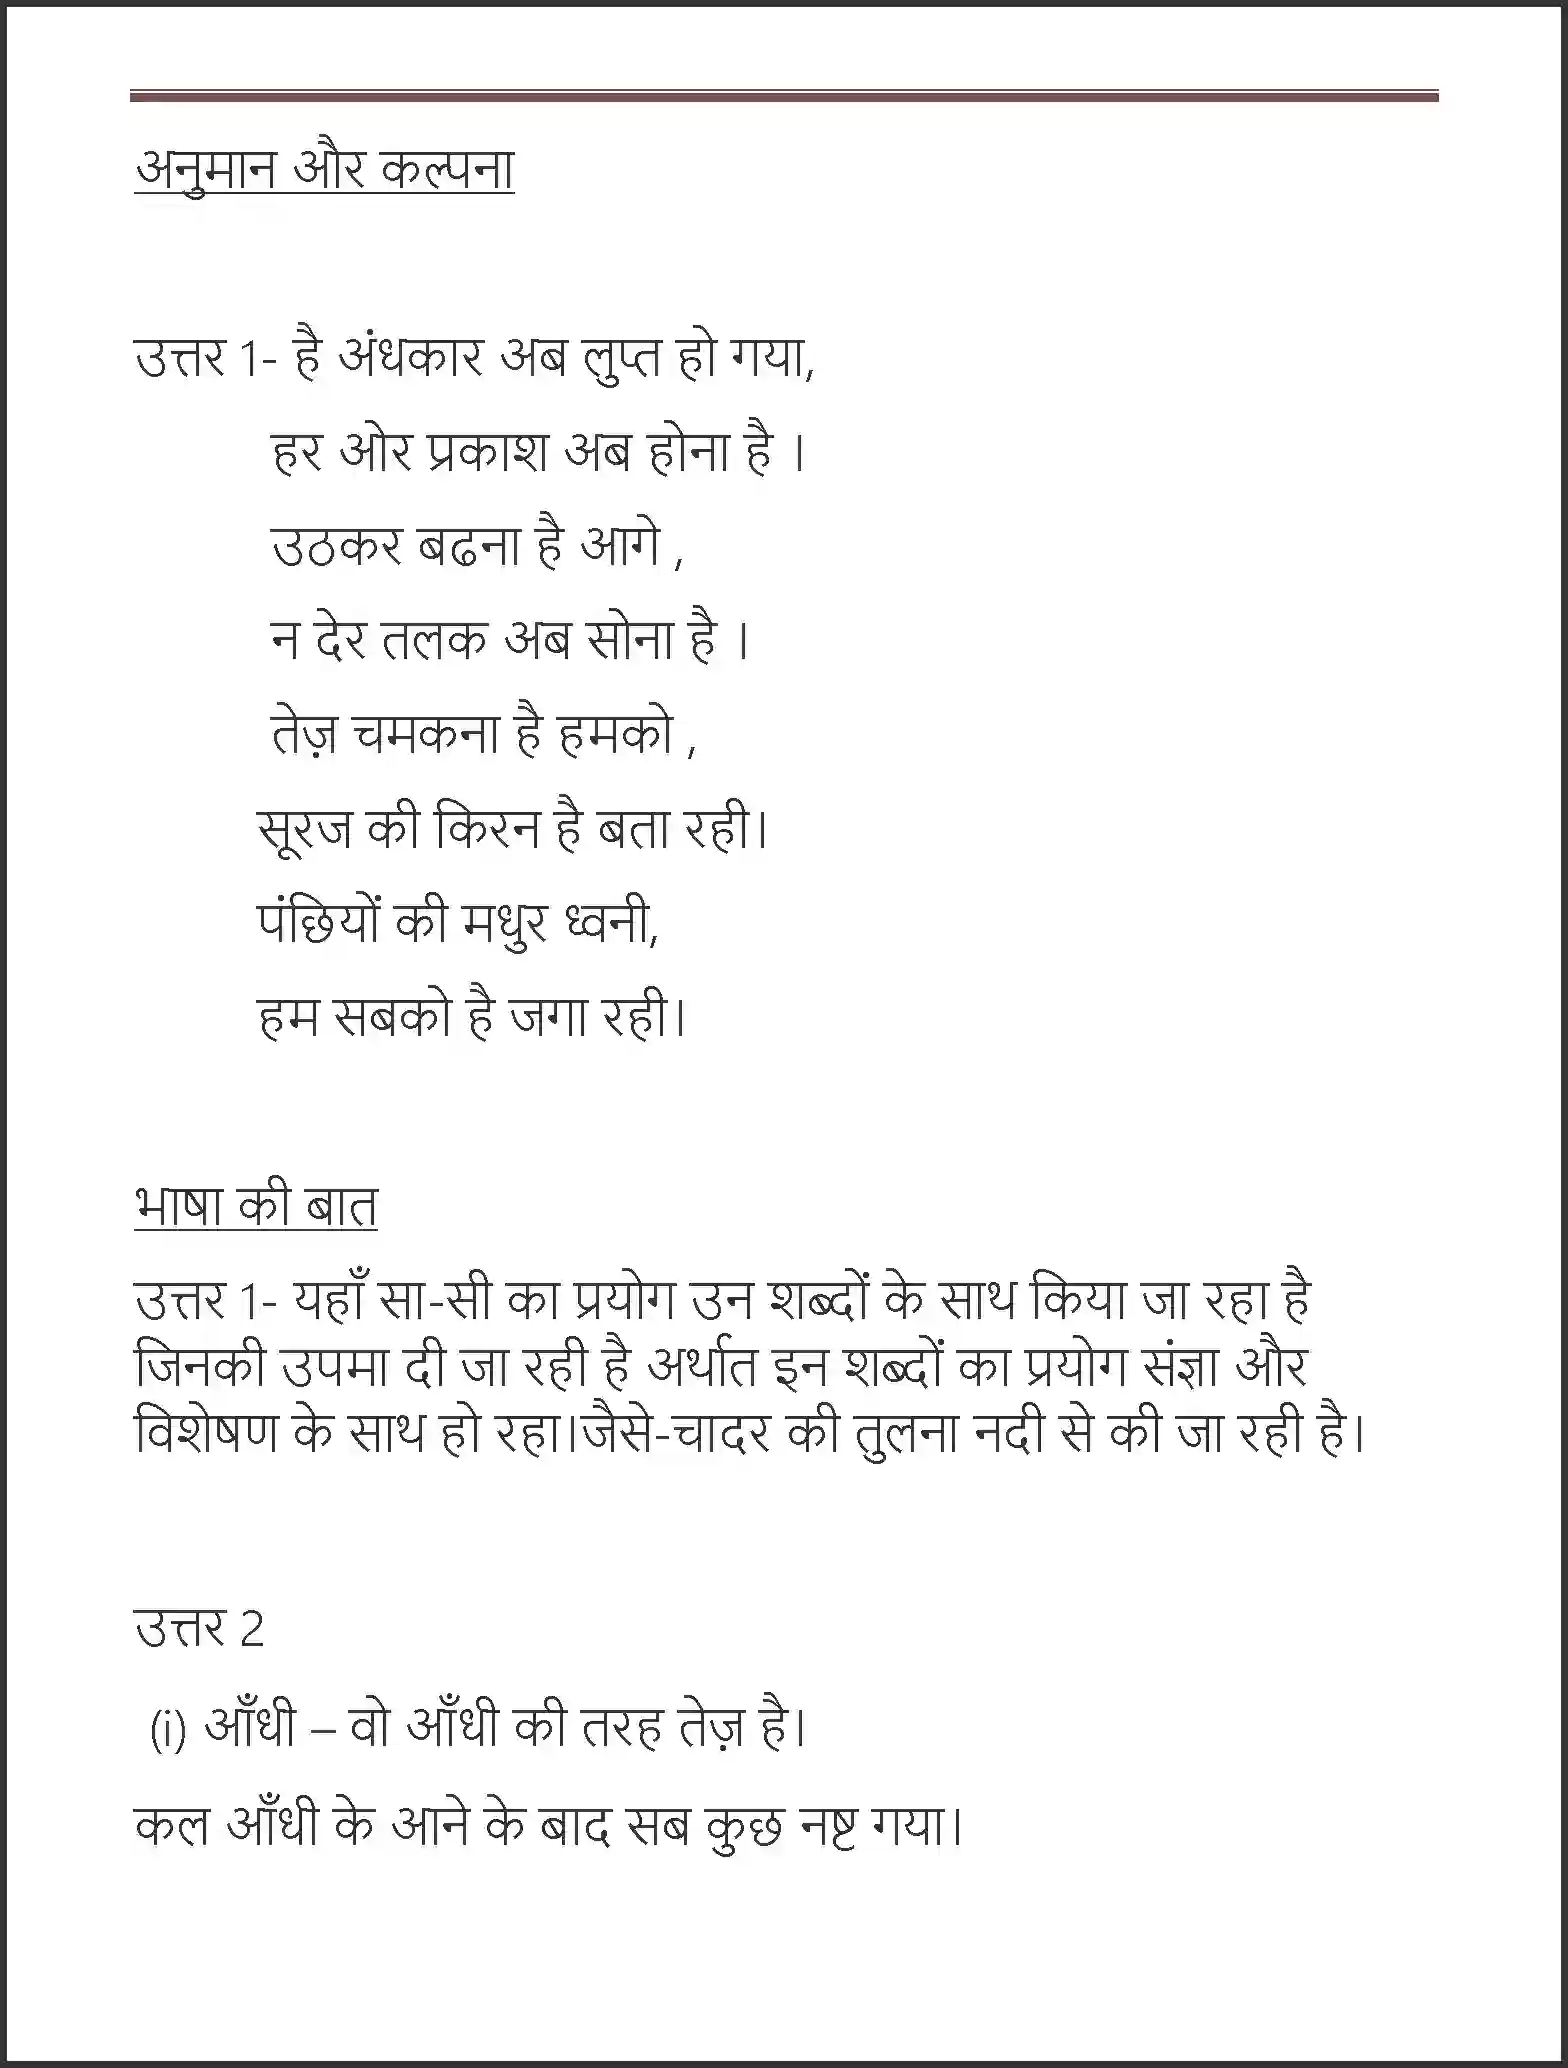 अनुमान और कल्पना
उत्तर 1- है अंधकार अब लुप्त हो गया,
हर ओर प्रकाश अब होना है ।
उठकर बढना है आगे ,
न देर तलक अब सोना है ।
तेज़ चमकना है हमको ,
सूरज की किरन है बता रही।
पंछियों की मधुर ध्वनी,
हम सबको है जगा रही।
भाषा की बात
उत्तर 1- यहाँ सा-सी का प्रयोग उन शब्दों के साथ किया जा रहा है
जिनकी उपमा दी जा रही है अर्थात इन शब्दों का प्रयोग संज्ञा और
विशेषण के साथ हो रहा।जैसे-चादर की तुलना नदी से की जा रही है।
उत्तर 2
(i) आँधी – वो आँधी की तरह तेज़ है।
कल आँधी के आने के बाद सब कुछ नष्ट गया।